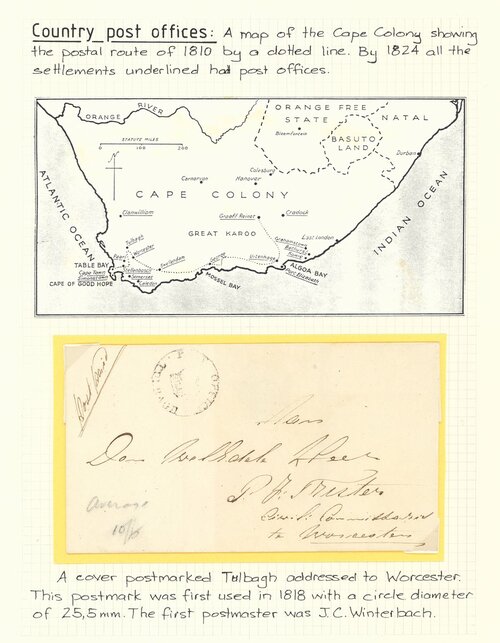 Country post offices: A map of the Cape Colony showing
the postal route of 1810 by a dotted line. By 1824 all the
settlements underlined had post offices.
ORANGE RIVER
ORANGE FREE
STATE
NATAL
Bloemfontein
BASUTO
LAND
STATUTE MILES
0 100 200
Durban
Colesburg
Carnarvon
Hanover
CAPE COLONY
ATLANTIC OCEAN
INDIAN OCEAN
Clanwilliam
Graaff Reinet
Cradock
GREAT KAROO
East London
Grahamstown
Tulbagh
Worcester
Paarl
TABLE BAY
Stellenbosch
Swellendam
George
Uitenhage
ALGOA BAY
Port Elizabeth
Cape Town
Simonstown
Somerset
Caledon
CAPE OF GOOD HOPE
MOSSEL BAY
POST OFFICE
Aan
Den
Heer
Civil Commissaris
to Worcester
Average
10/15
A cover postmarked Tulbagh addressed to Worcester.
This postmark was first used in 1818 with a circle diameter
of 25,5mm. The first postmaster was J.C. Winterbach.